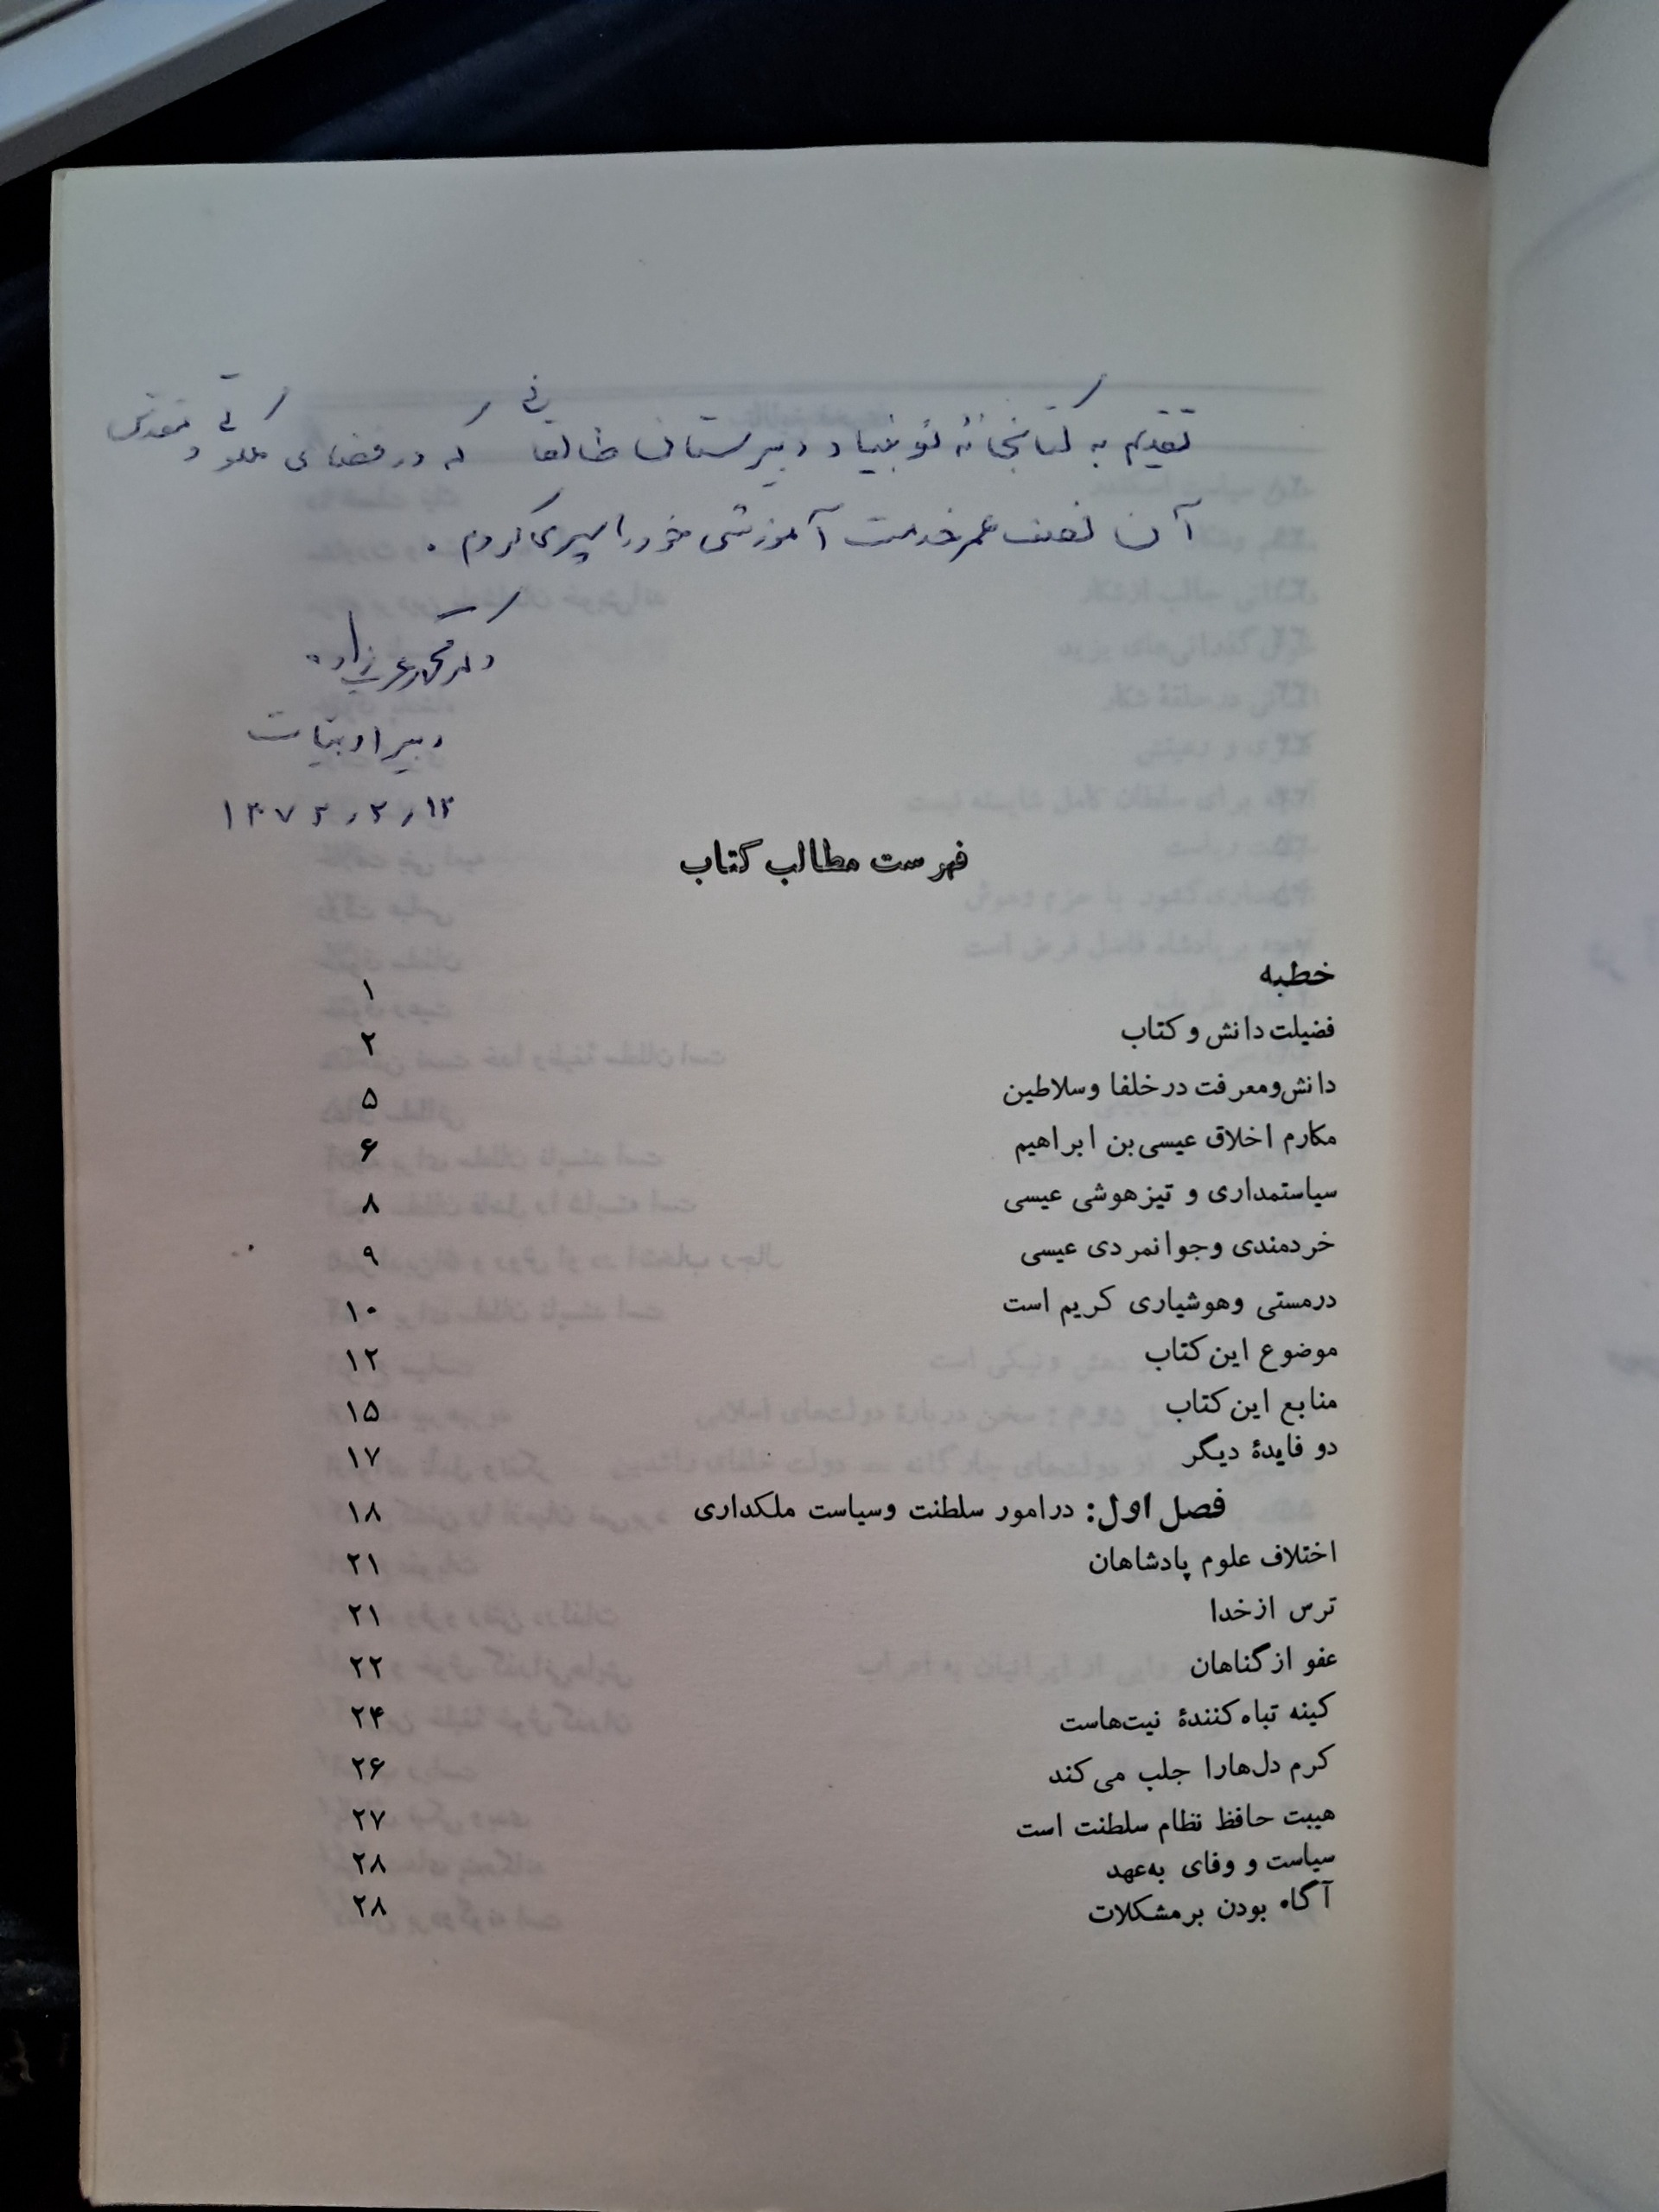 تقدیم به کتابخانهٔ نوبنیاد دبیرستان طالقانی که در فضای ملکوتی و مقدس
آن نصف عمر خدمت آموزشی خود را سپری کردم .
دکتر محمد عزیزاده
دبیر ادبیات
۱۳۷۲٫۲٫۱۳
فهرست مطالب کتاب
خطبه ۱
فضیلت دانش و کتاب ۲
دانش‌ومعرفت درخلفا وسلاطین ۵
مکارم اخلاق عیسی‌بن ابراهیم ۶
سیاستمداری و تیزهوشی عیسی ۸
خردمندی وجوانمردی عیسی ۹
درمستی وهوشیاری کریم است ۱۰
موضوع این کتاب ۱۲
منابع این کتاب ۱۵
دو فایدهٔ دیگر ۱۷
فصل اول: درامور سلطنت وسیاست ملکداری ۱۸
اختلاف علوم پادشاهان ۲۱
ترس ازخدا ۲۱
عفو ازگناهان ۲۲
کینه تباه‌کنندهٔ نیت‌هاست ۲۴
کرم دل‌هارا جلب می‌کند ۲۶
هیبت حافظ نظام سلطنت است ۲۷
سیاست و وفای به‌عهد ۲۸
آگاه بودن برمشکلات ۲۸